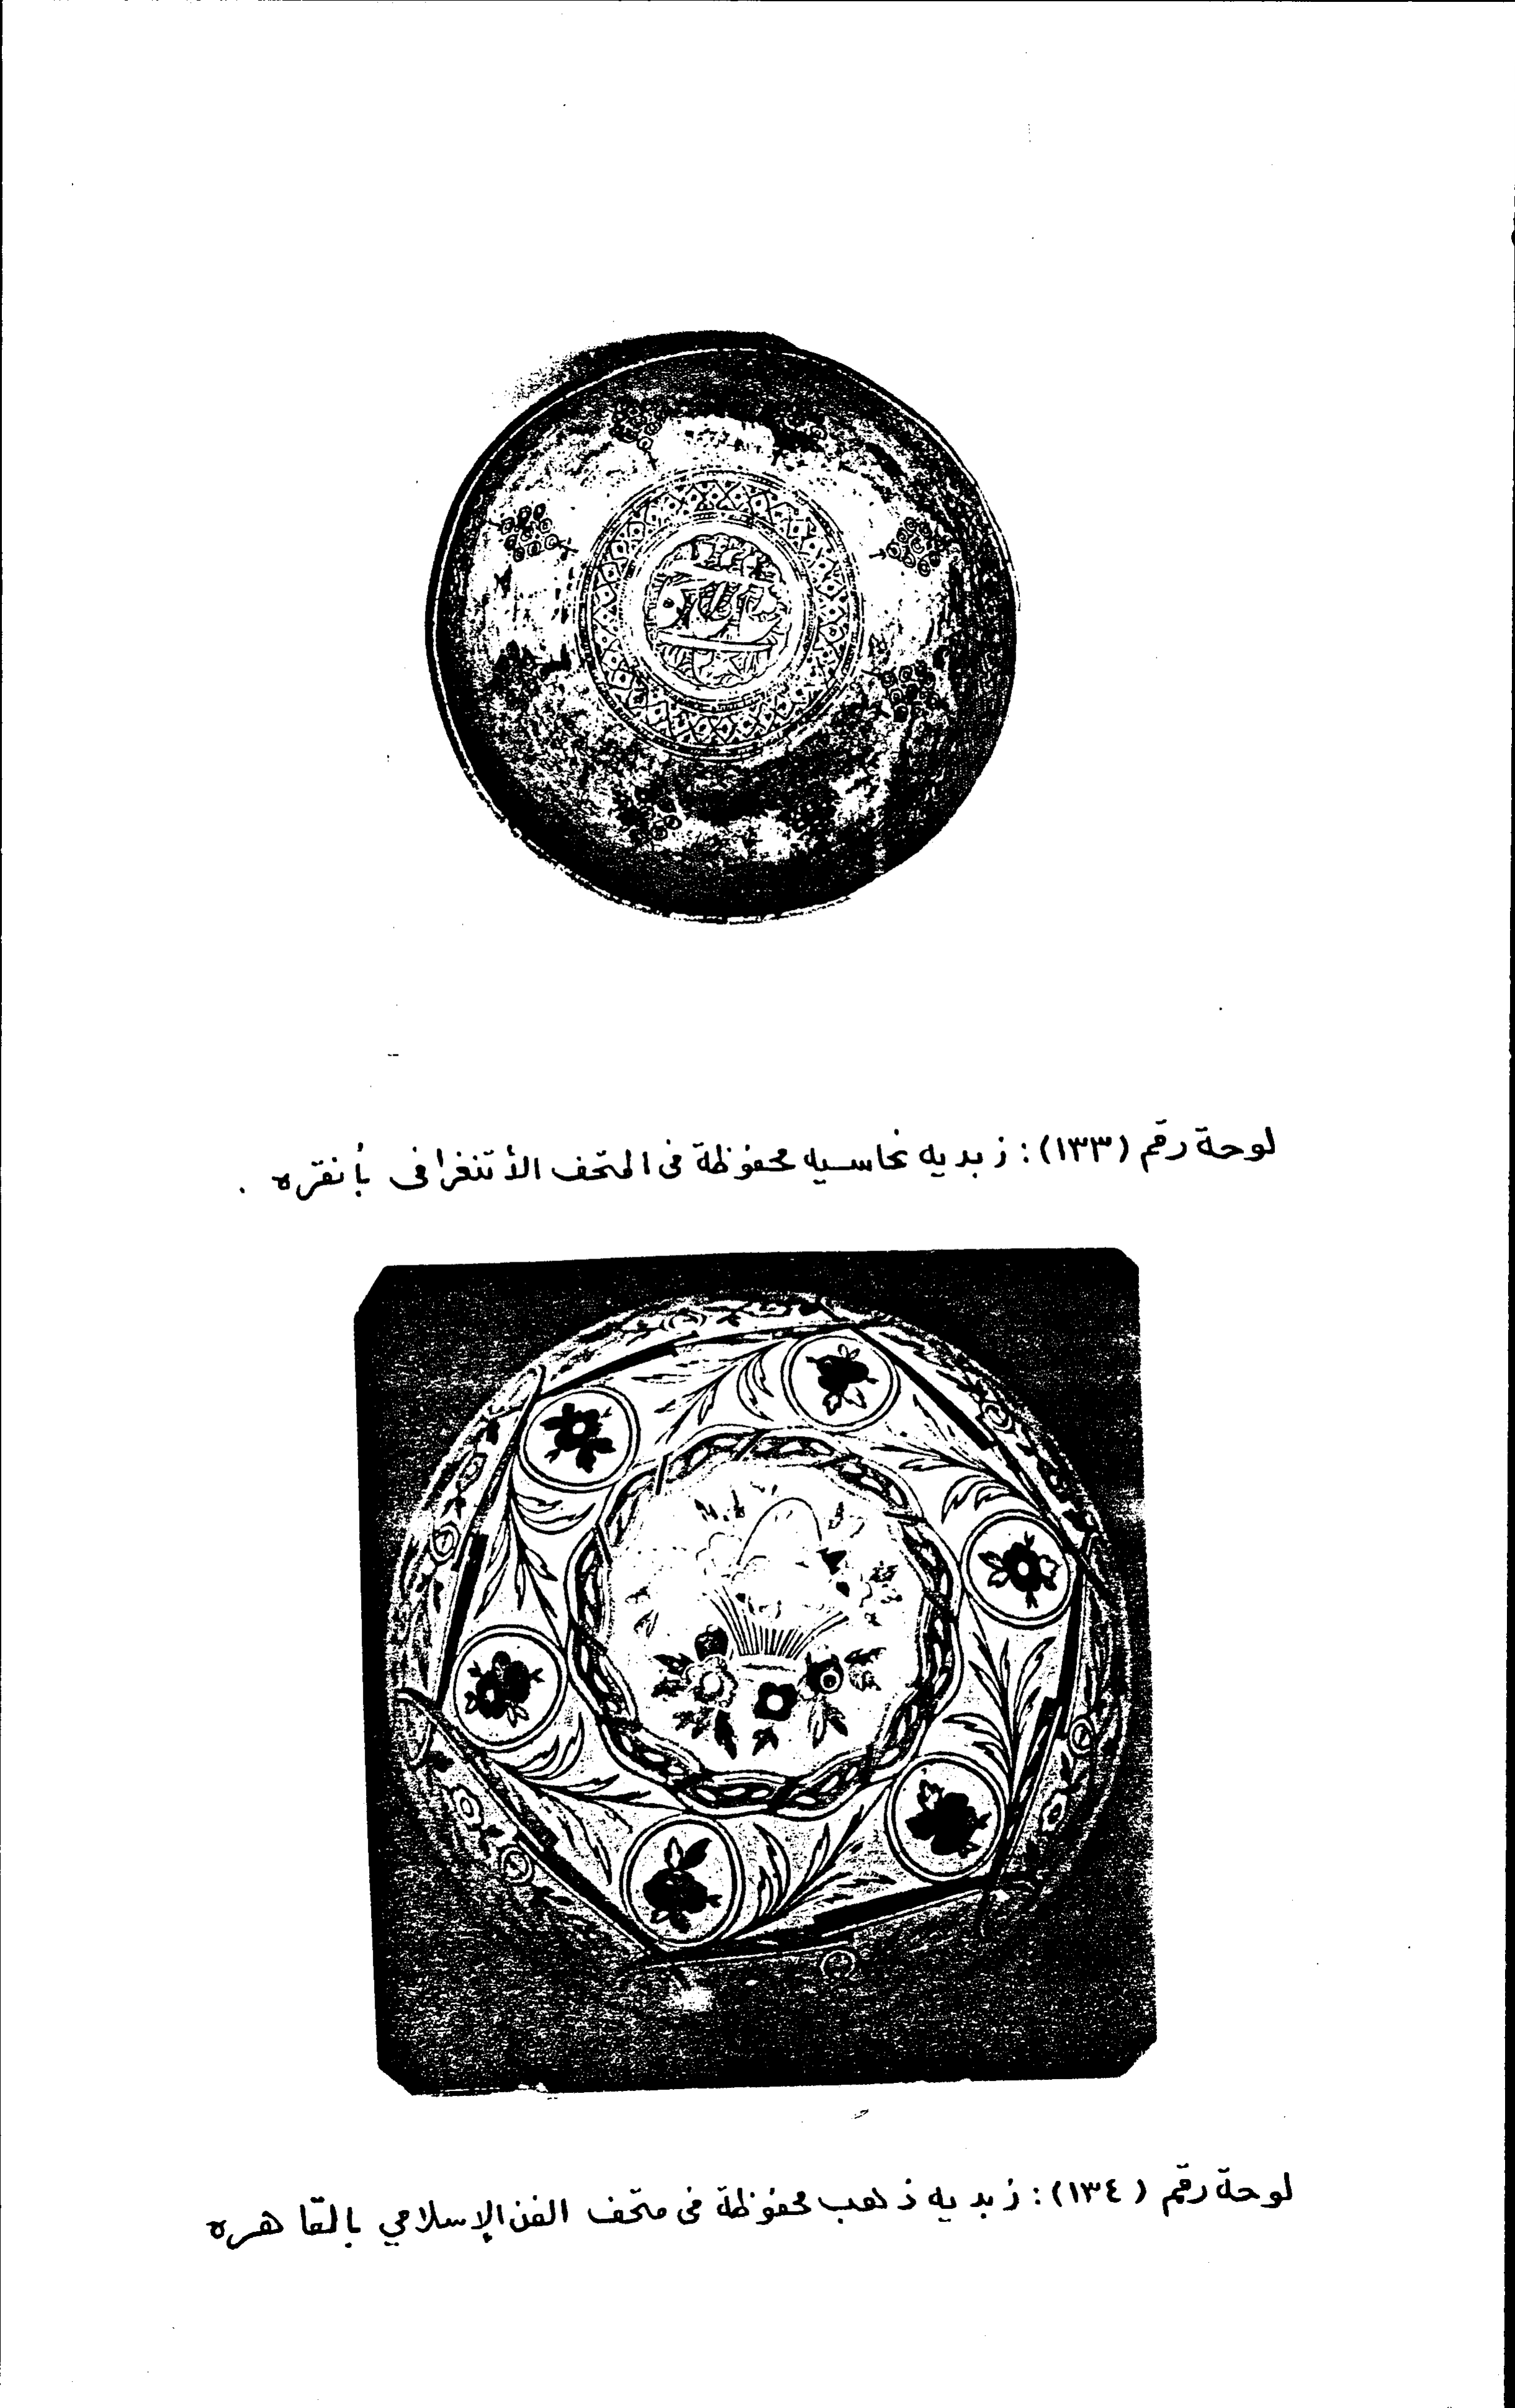 لوحة رقم (١٣٣): زبديه نحاسيه محفوظة فى المتحف الأتنغرافى بأنقره .
لوحة رقم (١٣٤): زبديه ذهب محفوظة فى متحف الفن الإسلامي بالقاهره